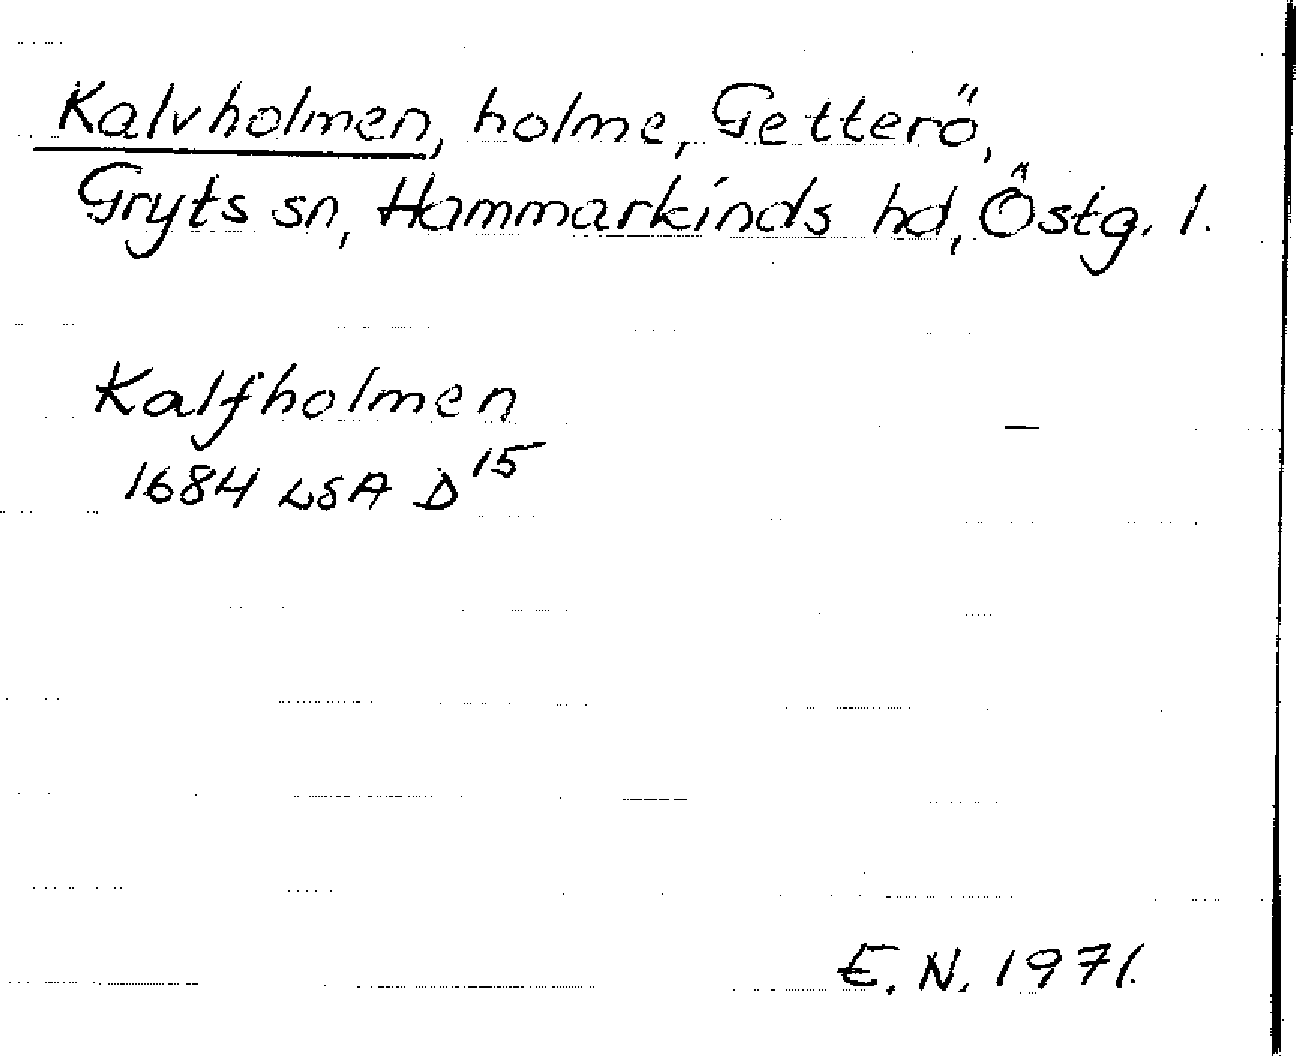 Kalvholmen, holme, Getterö,
Gryts sn, Hammarkinds hd, Östg. l.
Kalfholmen
1684 LSA D 15
E. N. 1971.